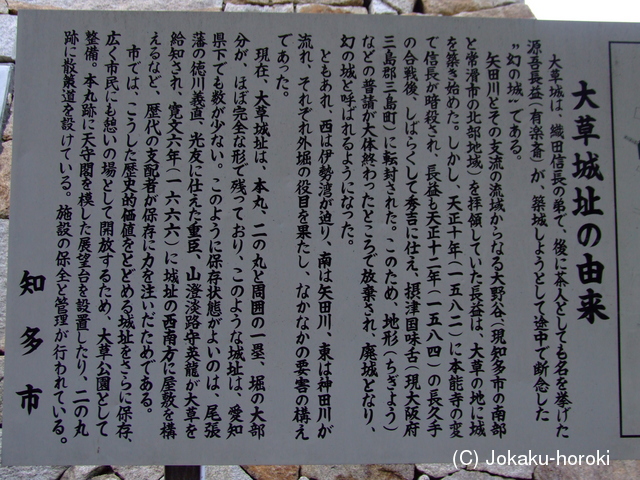 大草城址の由来
大草城は、織田信長の弟で、後に茶人としても名を挙げた
源吾長益(有楽斎)が、築城しようとして途中で断念した
"幻の城"である。
矢田川とその支流の流域からなる大野谷(現知多市の南部
と常滑市の北部地域)を拝領していた長益は、大草の地に城
を築き始めた。しかし、天正十年(一五八二)に本能寺の変
で信長が暗殺され、長益も天正十二年(一五八四)の長久手
の合戦後、しばらくして秀吉に仕え、摂津国味舌(現大阪府
三島郡三島町)に転封された。このため、地形(ちぎょう)
などの普請が大体終わったところで放棄され、廃城となり、
幻の城と呼ばれるようになった。
ともあれ、西は伊勢湾が迫り、南は矢田川、東は神田川が
流れ、それぞれ外堀の役目を果たし、なかなかの要害の構え
であった。
現在、大草城址は、本丸、二の丸と周囲の一塁、堀の大部
分が、ほぼ完全な形で残っており、このような城址は、愛知
県下でも数が少ない。このように保存状態がよいのは、尾張
藩の徳川義直、光友に仕えた重臣、山澄淡路守英龍が大草を
給知され、寛文六年(一六六六)に城址の西南方に屋敷を構
えるなど、歴代の支配者が保存に力を注いだためである。
市では、こうした歴史的価値をとどめる城址をさらに保存、
広く市民にも憩いの場として開放するため、大草公園として
整備。本丸跡に天守閣を模した展望台を設置したり、二の丸
跡に散策道を設けている。施設の保全と管理が行われている。
知多市
(C) Jokaku-horoki